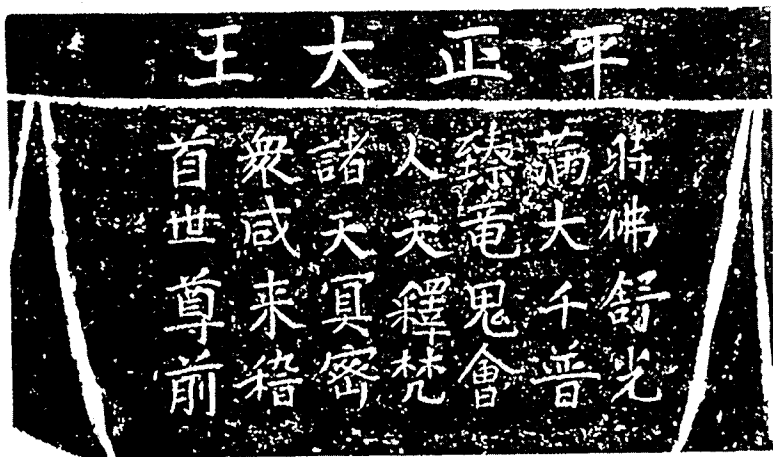 平正大王
時佛舒光
满大千普
臻竜鬼會
人天釋梵
諸天冥密
衆咸来稽
首世尊前